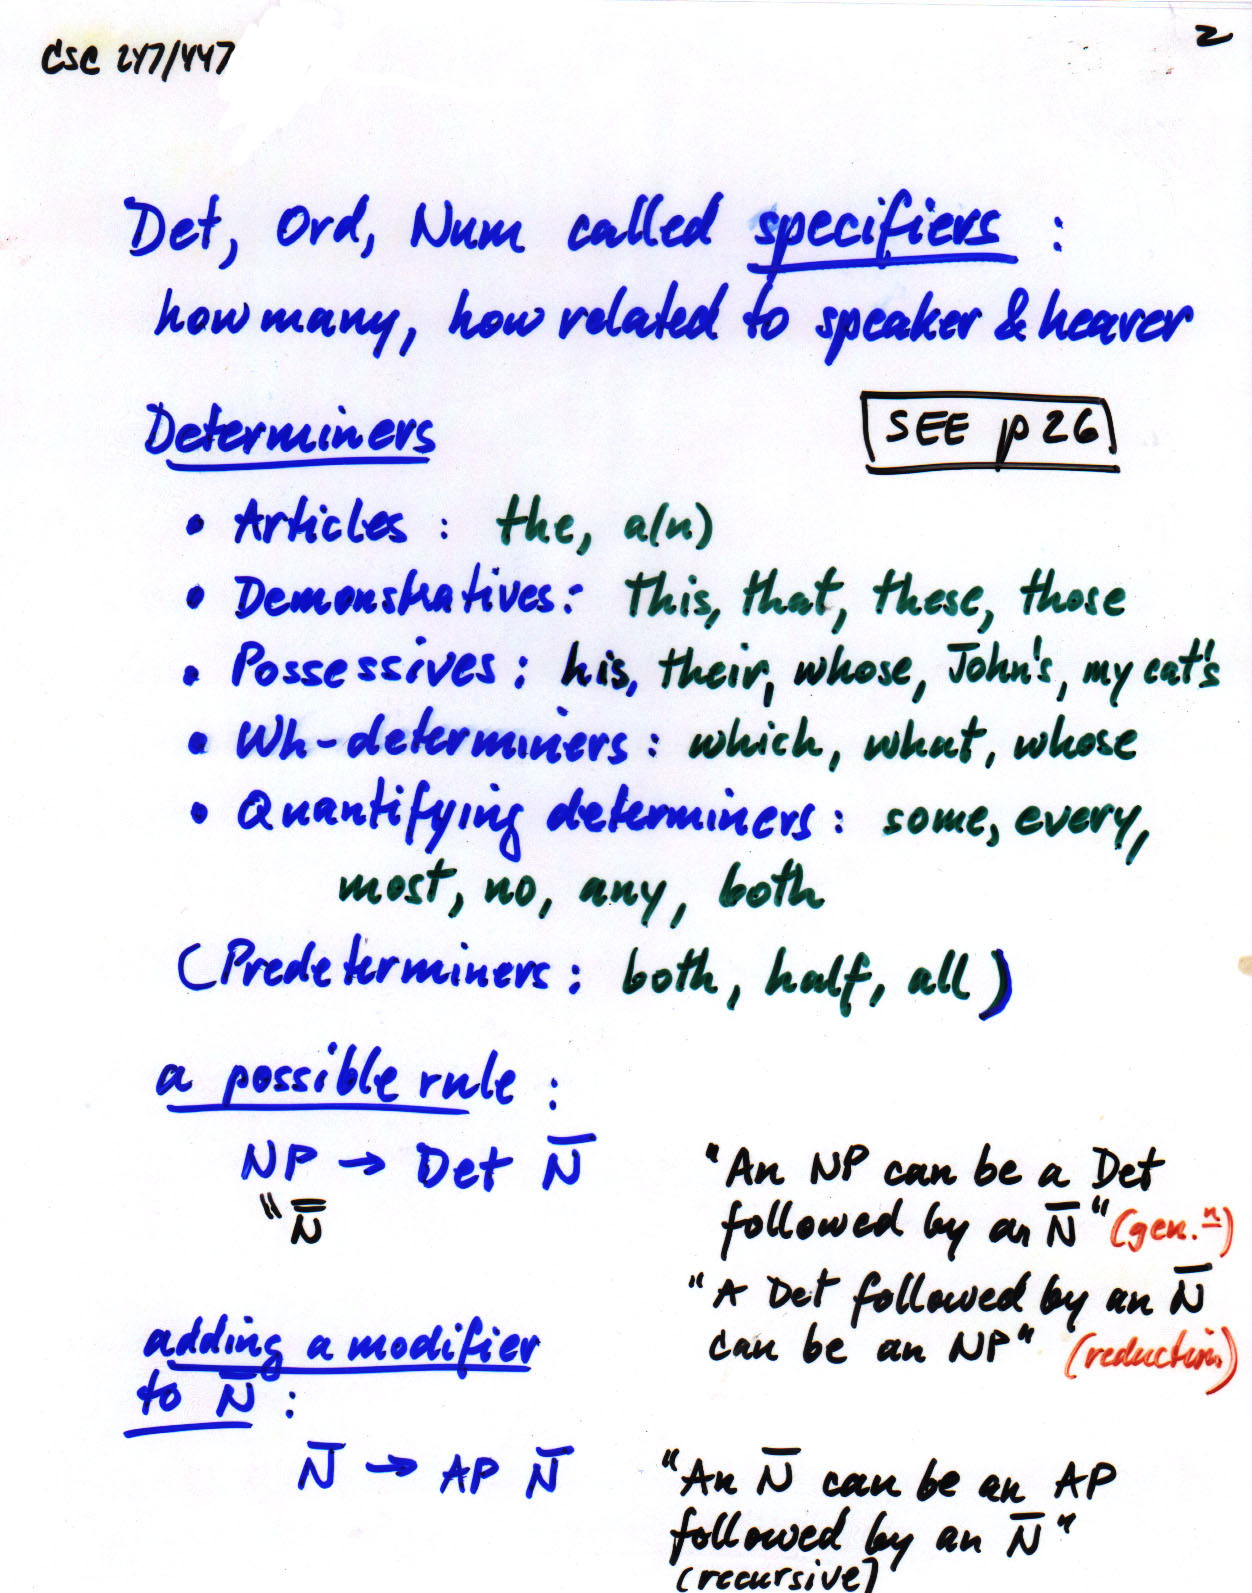 CSC 247/447
2
Det, Ord, Num called specifiers :
how many, how related to speaker & hearer
Determiners
SEE p 26
• Articles : the, a(n)
• Demonstratives: this, that, these, those
• Possessives : his, their, whose, John's, my cat's
• Wh-determiners : which, what, whose
• Quantifying determiners : some, every,
most, no, any, both
(Predeterminers : both, half, all)
a possible rule :
NP → Det N̅
" N̿
"An NP can be a Det
followed by an N̅" (gen.ⁿ)
"A Det followed by an N̅
can be an NP" (reduction)
adding a modifier
to N̅ :
N̅ → AP N̅
"An N̅ can be an AP
followed by an N̅"
(recursive)